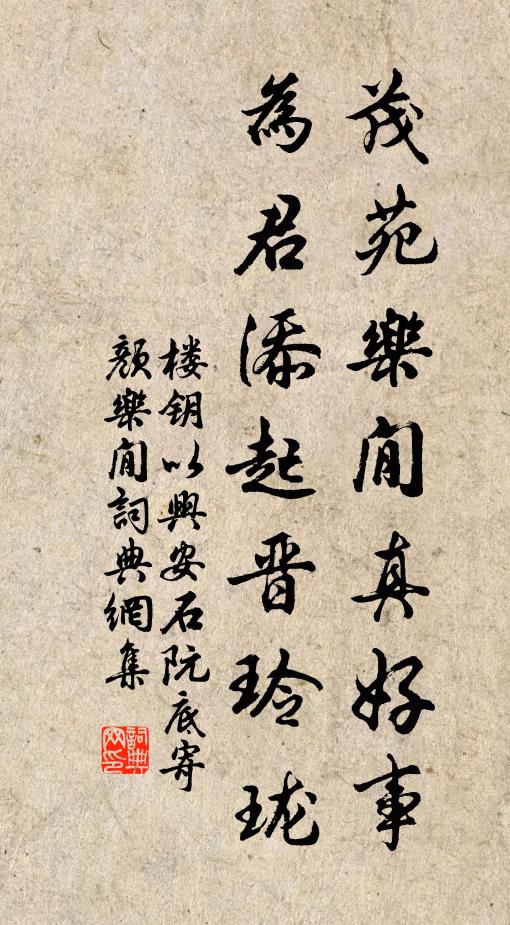 茂苑樂閒真好事
為君添起晋玲瓏
楼钥以興安石阮底寄
顏樂閒詞典網集
詞典网印